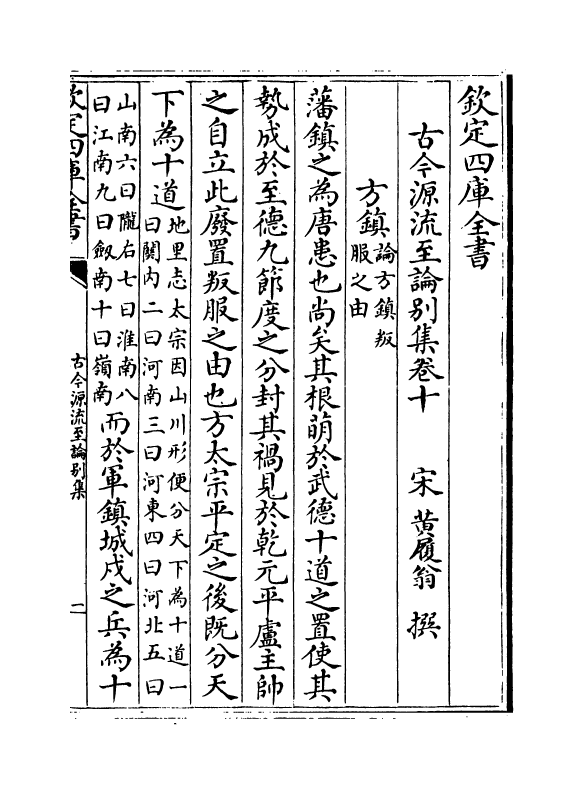 欽定四庫全書
古今源流至論別集卷十　宋　黃履翁　撰
方鎮論方鎮叛服之由
藩鎮之為唐患也尚矣其根萌於武德十道之置使其
勢成於至德九節度之分封其禍見於乾元平盧主帥
之自立此廢置叛服之由也方太宗平定之後既分天
下為十道地里志太宗因山川形便分天下為十道一曰關内二曰河南三曰河東四曰河北五曰
山南六曰隴右七曰淮南八曰江南九曰劔南十曰嶺南而於軍鎮城戍之兵為十
欽定四庫全書
古今源流至論別集
二